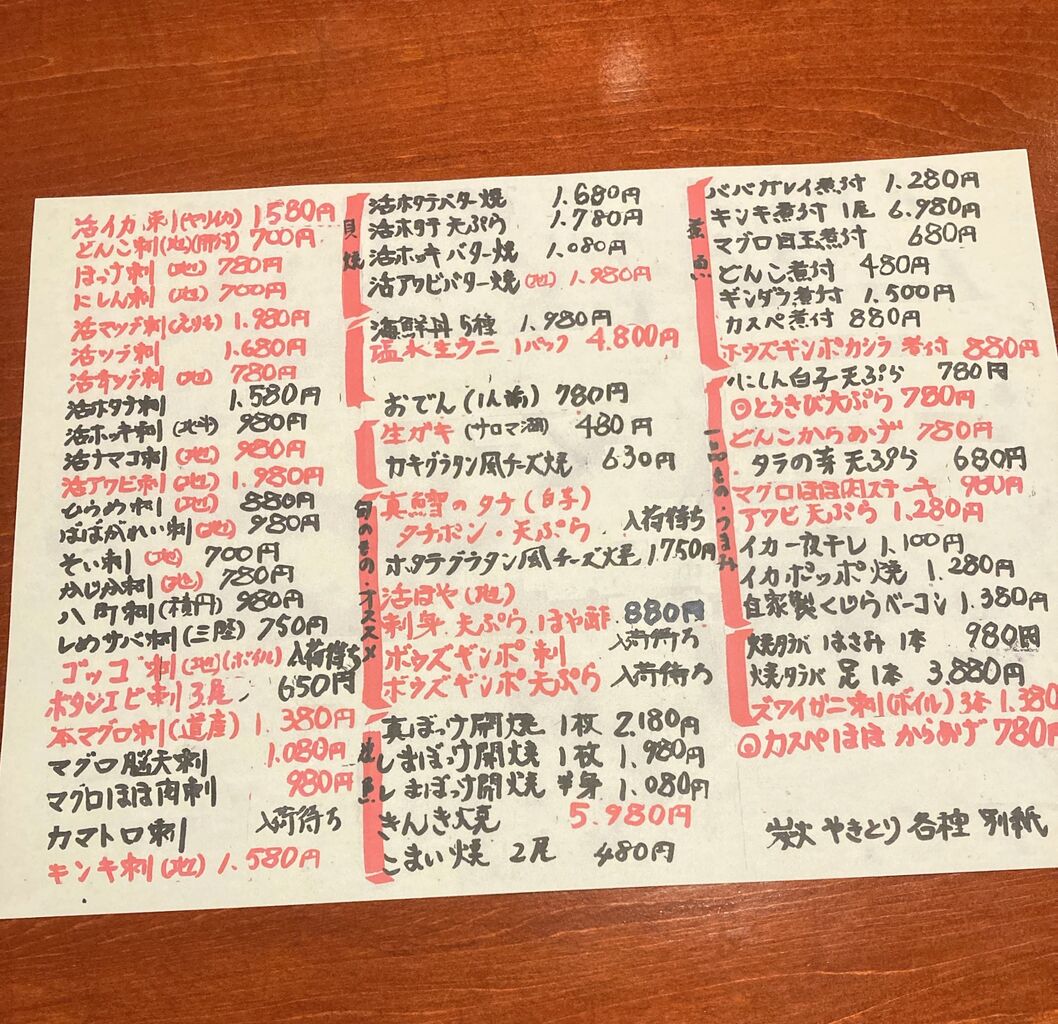 活イカ刺(ヤリイカ) 1580円
どんこ刺(地)(肝付) 700円
ほっけ刺(地) 780円
にしん刺(地) 700円
活マツブ刺(えりも) 1.980円
活ツブ刺 1.680円
活キツブ刺(地) 780円
活ホタテ刺 1.580円
活ホッキ刺 980円
活ナマコ刺(地) 980円
活アワビ刺(地) 1.980円
ひらめ刺(地) 880円
ばばがれい刺(地) 980円
そい刺(地) 700円
かじか刺(地) 780円
八町刺(積円) 980円
しめサバ刺(三陸) 750円
ゴッコ刺(地)(ボイル) 入荷待ち
ボタンエビ刺 3尾 650円
本マグロ刺(道産) 1.380円
マグロ脳天刺 1.080円
マグロほほ肉刺 980円
カマトロ刺 入荷待ち
キンキ刺(地) 1.580円
貝焼
活ホタテバター焼 1.680円
活ホタテ天ぷら 1.780円
活ホッキバター焼 1.080円
活アワビバター焼(地) 1.980円
海鮮丼 5種 1.980円
塩水生ウニ 1パック 4.800円
おでん(1人前) 780円
生ガキ(サロマ湖) 480円
カキグラタン風チーズ焼 630円
旬のもの・オススメ
真鱈のタチ(白子)
タチポン・天ぷら 入荷待ち
ホタテグラタン風チーズ焼 1.750円
活ほや(地)
刺身 天ぷら ほや酢 880円
ボウズギンポ刺 入荷待ち
ボウズギンポ天ぷら 入荷待ち
焼魚
真ほっけ開焼 1枚 2.180円
しまほっけ開焼 1枚 1.980円
しまほっけ開焼 半身 1.080円
きんき焼 5.980円
こまい焼 2尾 480円
煮魚
ババガレイ煮付 1.280円
キンキ煮付 1尾 6.980円
マグロ目玉煮付 680円
どんこ煮付 480円
ギンダラ煮付 1.500円
カスペ煮付 880円
ボウズギンポカシラ煮付 880円
一品もの・つまみ
にしん白子天ぷら 780円
◎とうきび天ぷら 780円
どんこからあげ 780円
タラの芽天ぷら 680円
マグロほほ肉ステーキ 980円
アワビ天ぷら 1.280円
イカ一夜干し 1.100円
イカポッポ焼 1.280円
自家製くじらベーコン 1.380円
焼タラバ はさみ 1本 980円
焼タラバ 足 1本 3.880円
ズワイガニ刺(ボイル) 3本 1.380
◎カスペほほからあげ 780円
炭火やきとり各種 別紙